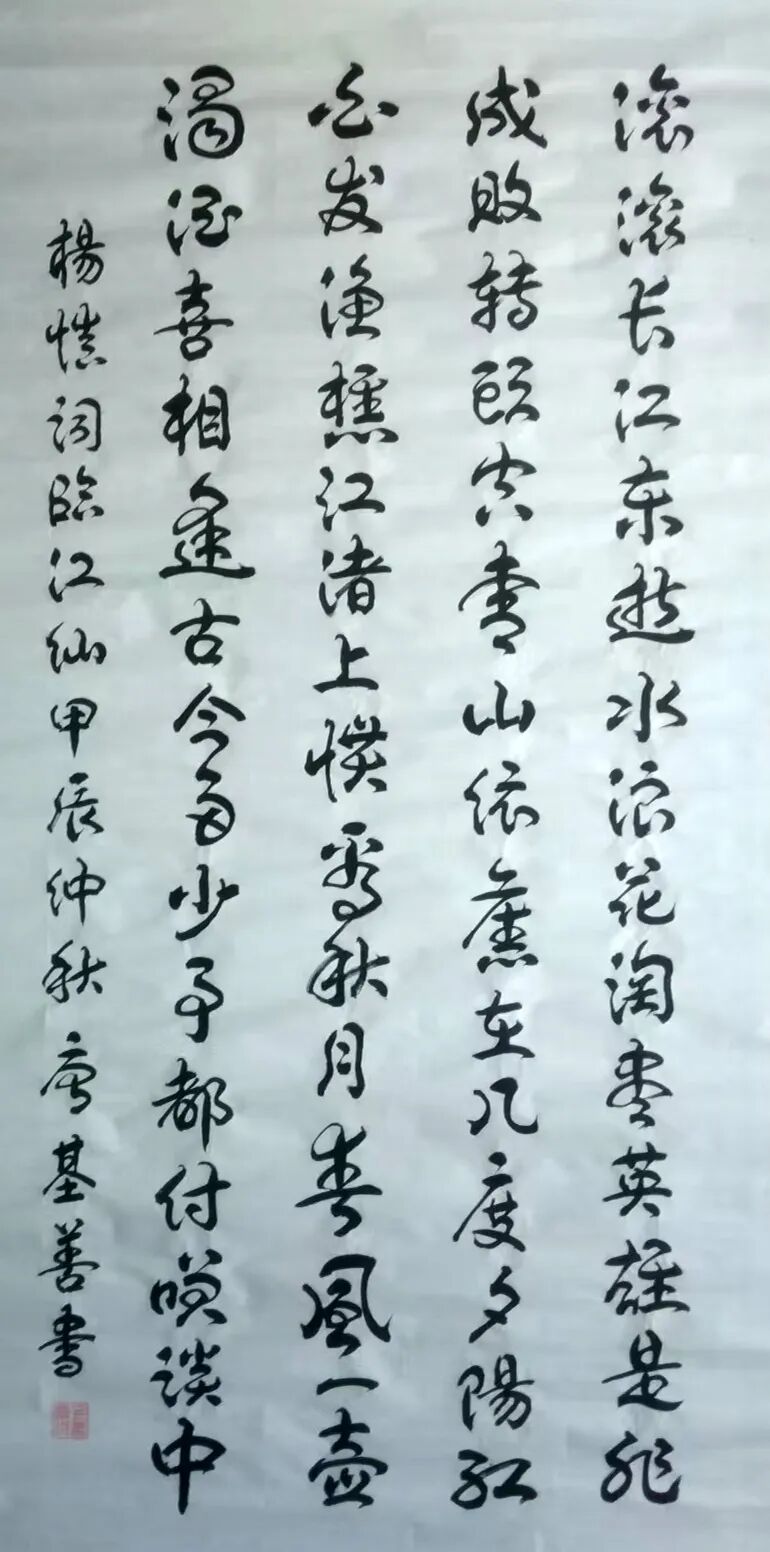 滚滚长江东逝水浪花淘尽英雄是非
成败转頭空青山依舊在几度夕陽红
白发渔樵江渚上惯看秋月春風一壶
濁酒喜相逢古今多少事都付咲談中
楊慎词臨江仙甲辰仲秋基善書